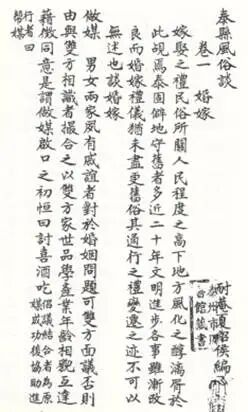 泰縣風俗談
卷一　婚嫁
耐菴夏紹侯編
嫁娶之禮民俗所關人民程度之高下地方風化之醇漓胥於
此覘焉泰國僻地守舊者多近二十年文明進步各事雖漸改
良而婚嫁禮儀猶未盡更舊俗其過行之禮變遷之迹不可以
無述也談婚嫁
做媒　男女兩家夙有戚誼者對於婚姻問題可雙方面議否則
由與雙方相識者撮合之以雙方家世品學產業年齡相貌互達
藉徵同意是謂做媒啟口之初恒曰討喜酒吃
倡議結合者為原
媒成功後協助進
行者曰
幫媒